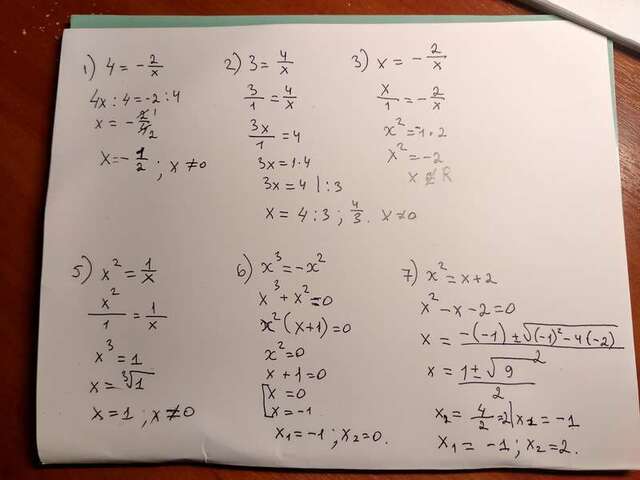 1) 4 = -2/x
4x : 4 = -2 : 4
x = -2/4 1/2
x = -1/2 ; x ≠ 0
2) 3 = 4/x
3/1 = 4/x
3x/1 = 4
3x = 1·4
3x = 4 | : 3
x = 4 : 3 ; 4/3. x ≠ 0
3) x = -2/x
x/1 = -2/x
x² = -1·2
x² = -2
x ∉ R
5) x² = 1/x
x²/1 = 1/x
x³ = 1
x = ³√1
x = 1 ; x ≠ 0
6) x³ = -x²
x³ + x² = 0
x²(x+1) = 0
x² = 0
x + 1 = 0
[x = 0
x = -1
x₁ = -1 ; x₂ = 0.
7) x² = x + 2
x² - x - 2 = 0
x = -(-1) ± √(-1)² - 4(-2) / 2
x = 1 ± √9 / 2
x₂ = 4/2 = 2 | x₁ = -1
x₁ = -1 ; x₂ = 2.